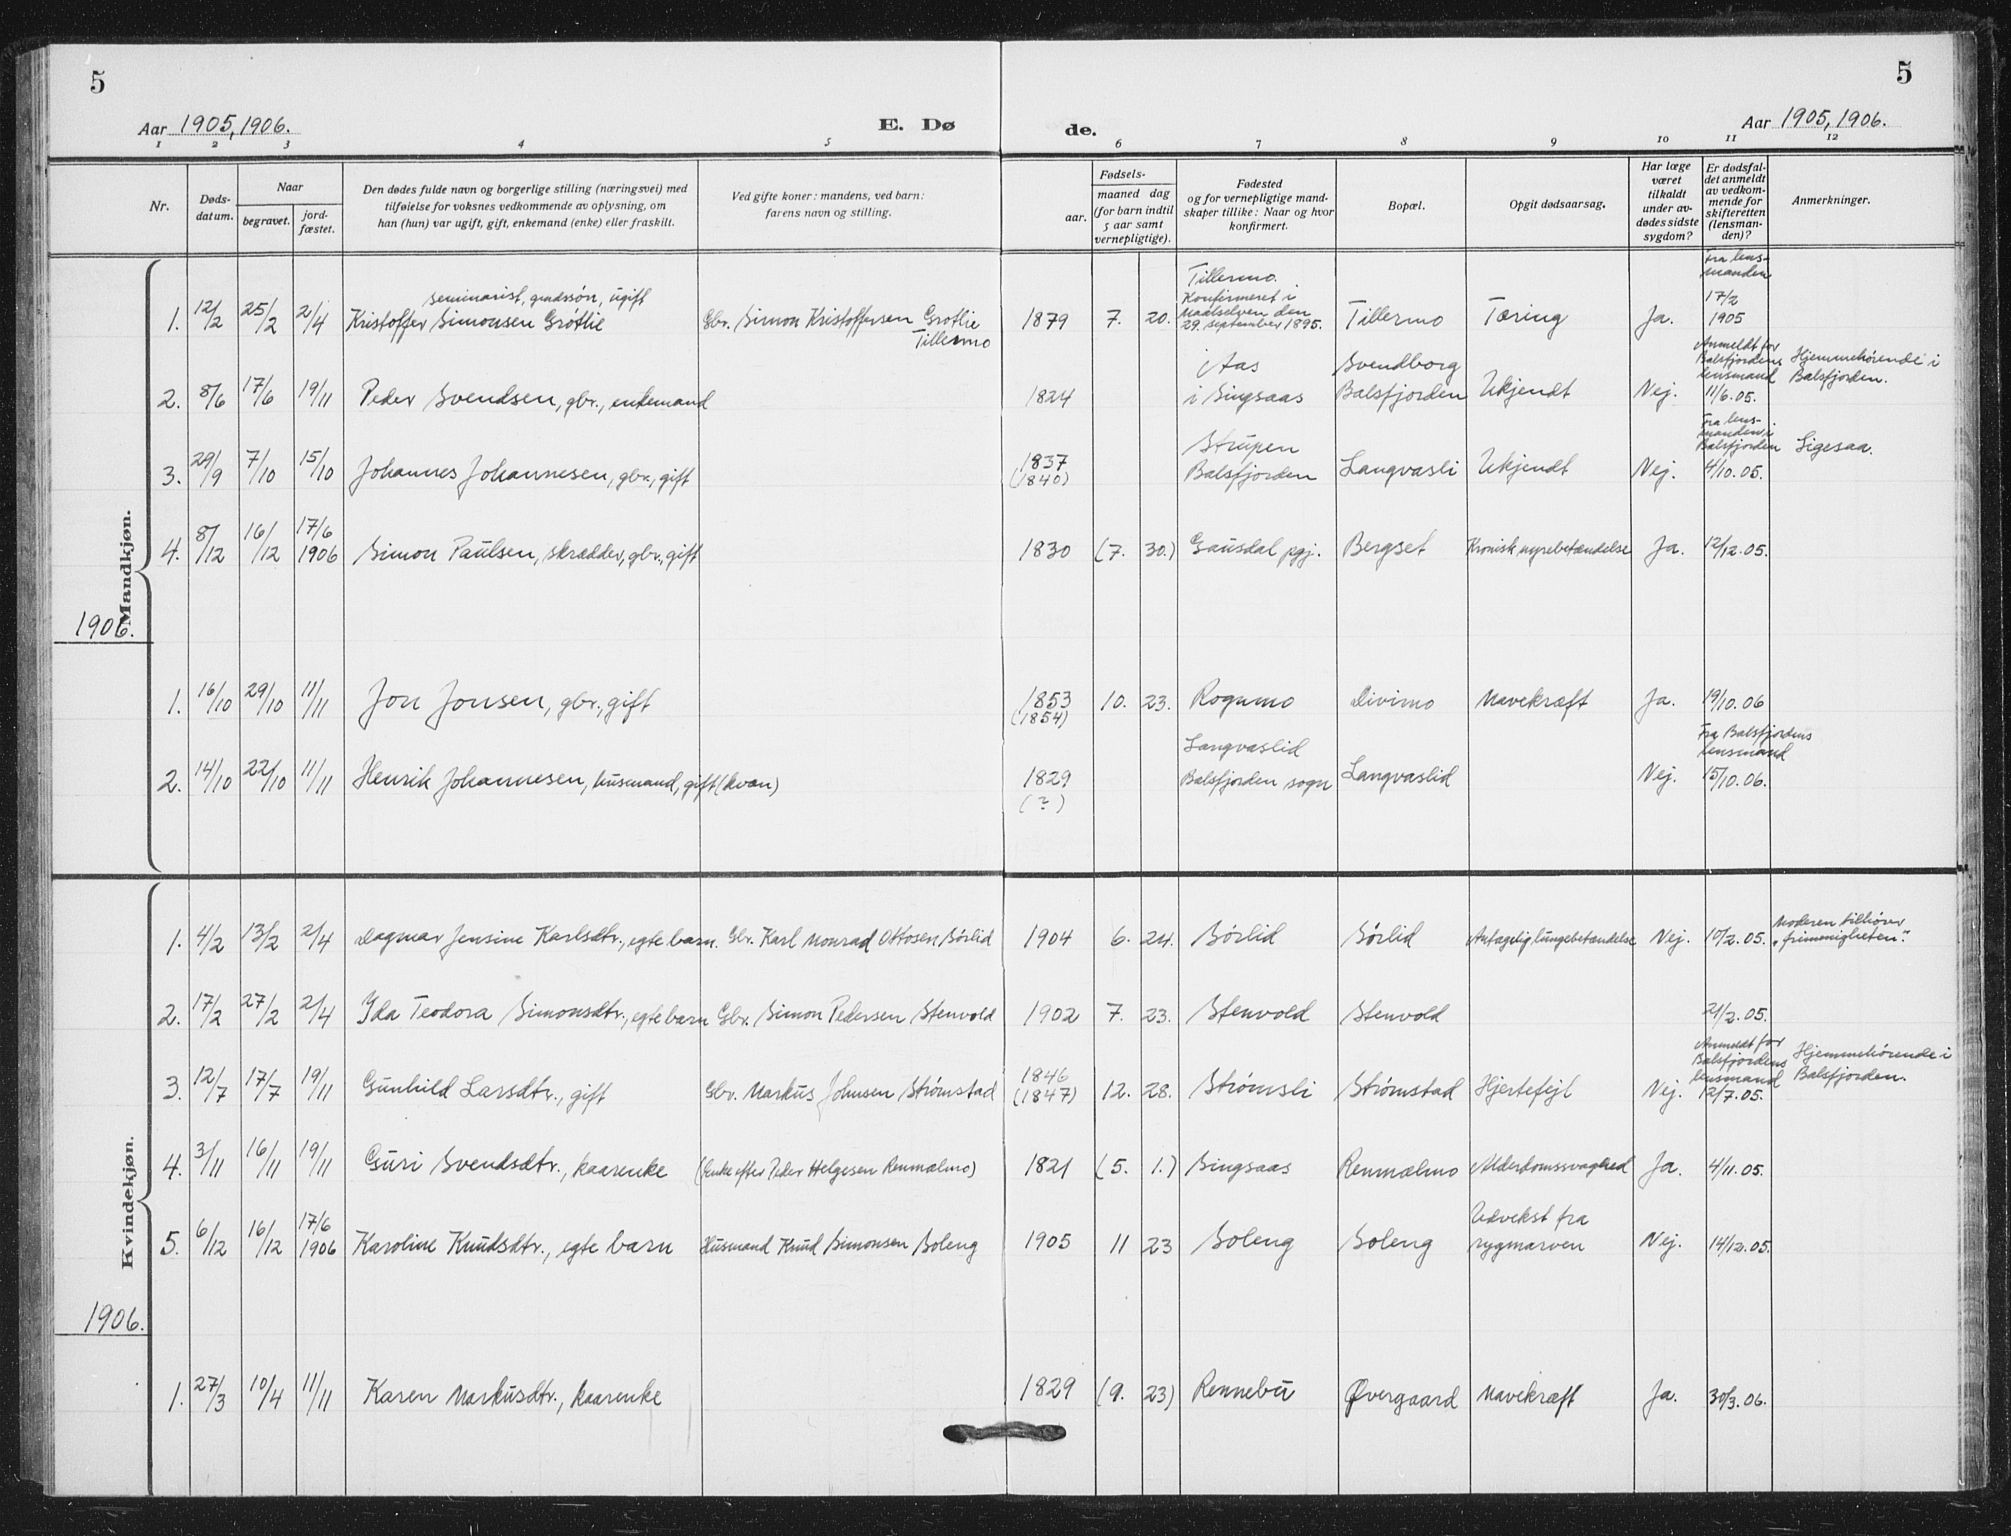 5
5
Aar 1905, 1906.
E. Dø
de.
Aar 1905, 1906.
1 2 3 4 5 6 7 8 9 10 11 12
Nr.
Døds-
datum.
Naar
begravet.
jord-
fæstet.
Den dødes fulde navn og borgerlige stilling (næringsvei) med
tilføielse for voksnes vedkommende av oplysning, om
han (hun) var ugift, gift, enkemand (enke) eller fraskilt.
Ved gifte koner: mandens, ved barn:
farens navn og stilling.
Fødsels-
aar.
maaned dag
(for barn indtil
5 aar samt
vernepligtige).
Fødested
og for vernepligtige mand-
skaper tillike: Naar og hvor
konfirmert.
Bopæl.
Opgit dødsaarsag.
Har læge
været
tilkaldt
under av-
dødes sidste
sygdom?
Er dødsfal-
det anmeldt
av vedkom-
mende for
skifteretten
(lensman-
den)?
Anmerkninger.
Mandkjøn.
1. 12/2 25/2 2/4
seminarist, gaardssøn, ugift
Kristoffer Simonsen Grøtlie
Gbr. Simon Kristoffersen Grøtlie
Tillermo
1879 7. 20.
Tillermo.
Konfirmeret i
Maalselven den
29. september 1895.
Tillermo Tæring Ja.
Fra lens-
manden
17/2
1905
2. 8/6 17/6 19/11 Peder Svendsen, gbr., enkemand
1824
Aas
i Singsaas
Svendborg
Balsfjorden
Ukjendt Nej.
Anmeldt for
Balsfjordens
lensmand
11/6.05.
Hjemmehørende i
Balsfjorden.
3. 29/9 7/10 15/10 Johannes Johannesen, gbr., gift
1837
(1840)
Strupen
Balsfjorden
Langvasli Ukjendt Nej.
Fra lens-
manden i
Balsfjorden
4/10.05.
Ligesaa.
4. 8/12 16/12 17/6
1906
Simon Paulsen, skrædder, gbr., gift
1830 (7. 30.) Gausdal pgj. Bergset Kronisk nyrebetændelse Ja. 12/12.05.
1906.
1. 16/10 29/10 11/11 Jon Jonsen, gbr., gift
1853
(1854)
10. 23. Rognmo Divimo Mavekræft Ja. 19/10.06
2. 14/10 22/10 11/11 Henrik Johannesen, husmand, gift (kvæn)
1829
(?)
Langvaslid
Balsfjorden sogn
Langvaslid Nej.
Fra Balsfjordens
lensmand
15/10.06.
Kvindekjøn.
1. 4/2 13/2 2/4 Dagmar Jensine Karlsdtr., egte barn. Gbr. Karl Monrad Ottosen Sørlid 1904 6. 24. Sørlid Sørlid Antagelig lungebetændelse Nej. 10/2.05.
Moderen tilhører
"frimenigheten".
2. 17/2 27/2 2/4 Ida Teodora Simonsdtr., egte barn Gbr. Simon Pedersen Stenvold 1902 7. 23. Stenvold Stenvold 21/2.05.
3. 12/7 17/7 19/11 Gunhild Larsdtr., gift Gbr. Markus Johnsen Strømstad
1846
(1847)
12. 28. Strømsli Strømstad Hjertefejl Nej.
Anmeldt for
Balsfjordens
lensmand
12/7.05.
Hjemmehørende i
Balsfjorden.
4. 3/11 16/11 19/11 Guri Svendsdtr., kaarenke (Enke efter Peder Helgesen Renmælmo) 1821 (5. 1.) Singsaas Renmælmo Alderdomssvaghed Ja. 4/11.05.
5. 6/12 16/12 17/6
1906
Karoline Knudsdtr., egte barn Husmand Knud Simonsen Soleng 1905 11 23 Soleng Soleng
Udvekst fra
rygmarven
Nej. 14/12.05.
1906.
1. 27/3 10/4 11/11 Karen Markusdtr., kaarenke 1829 (9. 23) Rennebu Øvergaard Mavekræft Ja. 30/3.06.